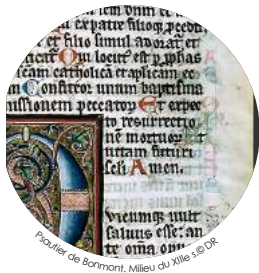 ex patre filioq; procedit
et filio simul adorat̄ et
ficat̄ Qui locut̄ est p̱ p̱phas
icam catholicā et aplicam ec
Confiteor unum baptisma
missionem peccatoꝝ Et expec
to resurrectio
nē mortuoꝝ Et
uitam futuri
scli Amen.
uicumq; uult
saluus esse: an
te om̄ia opus
Psautier de Bonmont, Milieu du XIIIe s.© DR